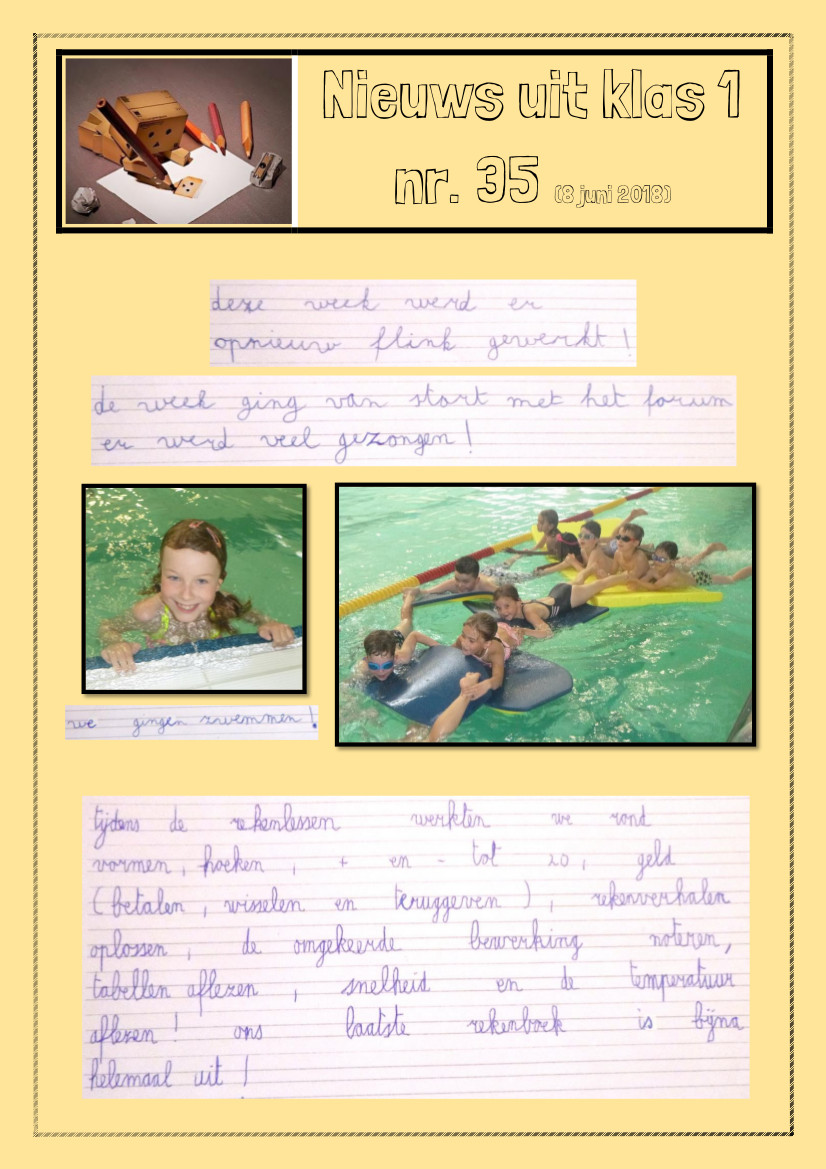 Nieuws uit klas 1
nr. 35 (8 juni 2018)
deze week werd er
opnieuw flink gewerkt!
de week ging van start met het forum
er werd veel gezongen!
we gingen zwemmen!
tijdens de rekenlessen werkten we rond
vormen, hoeken, + en - tot 20, geld
(betalen, wisselen en teruggeven), rekenverhalen
oplossen, de omgekeerde bewerking noteren,
tabellen aflezen, snelheid en de temperatuur
aflezen! ons laatste rekenboek is bijna
helemaal uit!